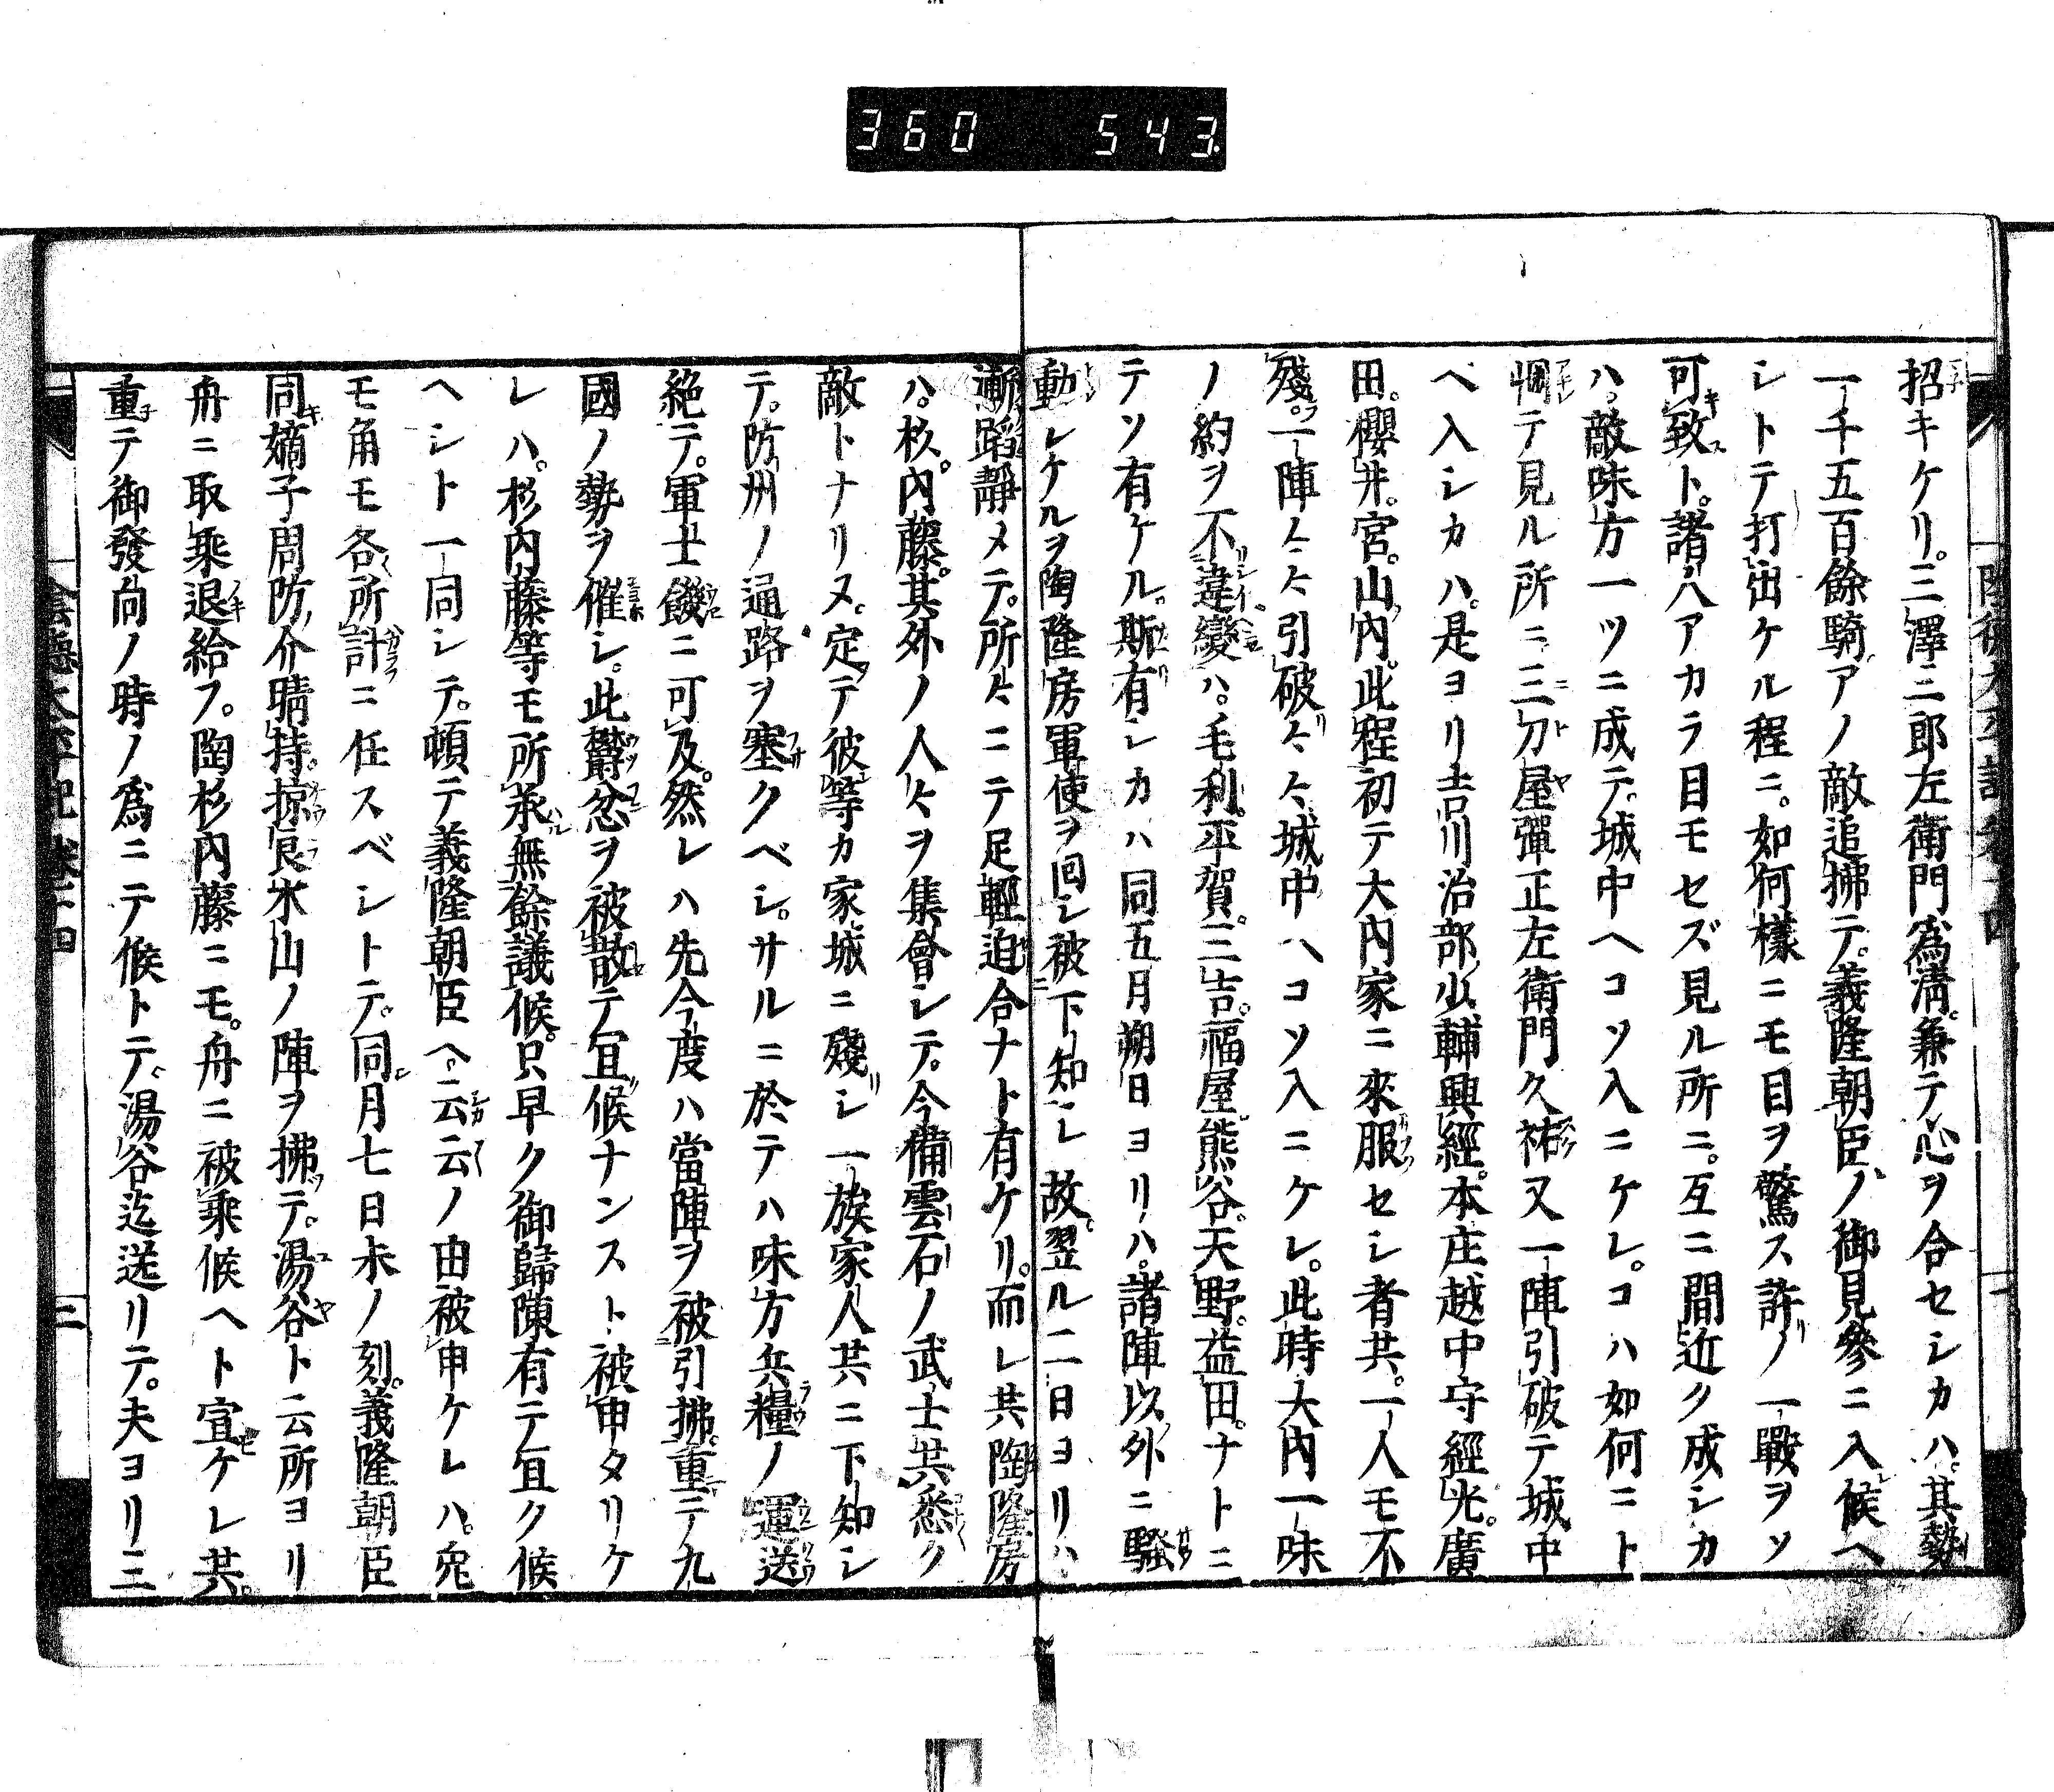 360 543
招キケリ。三澤二郎左衛門爲溝。兼テ心ヲ合セシカハ。其勢
一千五百餘騎アノ敵追拂テ。義隆朝臣ノ御見參ニ入候ヘ
シトテ打出ケル程ニ。如何樣ニモ目ヲ驚ス許ノ一戰ヲソ
可致ト。諸人アカラ目モセズ見ル所ニ。互ニ間近ク成シカ
ハ。敵味方一ツニ成テ。城中ヘコソ入ニケレ。コハ如何ニト
惘テ見ル所ニ。三刀屋彈正左衛門久祐又一陣引破テ城中
ヘ入シカハ。是ヨリ吉川治部少輔興經。本庄越中守經光。廣
田。櫻井。宮。山内。此程初テ大内家ニ來服セシ者共。一人モ不
殘。一陣〻〻引破〻〻。城中ヘコソ入ニケレ。此時大内一味
ノ約ヲ不違變ハ。毛利。平賀。三吉。福屋。熊谷。天野。益田。ナトニ
テソ有ケル。斯有シカハ同五月朔日ヨリハ。諸陣以外ニ騷
動シケルヲ陶隆房軍使ヲ回シ被下知シ故。翌ル二日ヨリハ
漸蹈靜メテ。所〻ニテ足輕迫合ナト有ケリ。而レ共陶隆房
ハ。杉。内藤。其外ノ人〻ヲ集會シテ。今備雲石ノ武士共悉ク
敵トナリヌ。定テ彼等カ家城ニ殘シ一族家人共ニ下知シ
テ。防州ノ通路ヲ塞クベシ。サルニ於テハ味方兵糧ノ運送
絶テ。軍士饑ニ可及。然レハ先今度ハ當陣ヲ被引拂。重テ九
國ノ勢ヲ催シ。此欝忿ヲ被散テ宜候ナンスト被申タリケ
レハ。杉内藤等モ所承無餘議候。只早ク御歸陳有テ宜ク候
ヘシト一同シテ。頓テ義隆朝臣ヘ。云云ノ由被申ケレハ。兔
モ角モ各所計ニ任スベシトテ。同月七日未ノ刻。義隆朝臣
同嫡子周防介晴持。掠良木山ノ陣ヲ拂テ。湯谷ト云所ヨリ
舟ニ取乘退給フ。陶杉内藤ニモ。舟ニ被乘候ヘト宣ケレ共。
重テ御發向ノ時ノ爲ニテ候トテ。湯谷迄送リテ。夫ヨリ三